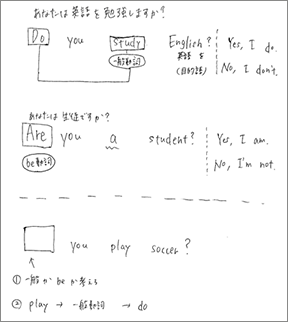 あなたは英語を勉強しますか?
Do you study English? Yes, I do.
一般動詞 英語を
(目的語) No, I don't.
あなたは生徒ですか?
Are you a student? Yes, I am.
be動詞 No, I'm not.
you play soccer?
① 一般かbeか考える
② play → 一般動詞 → do